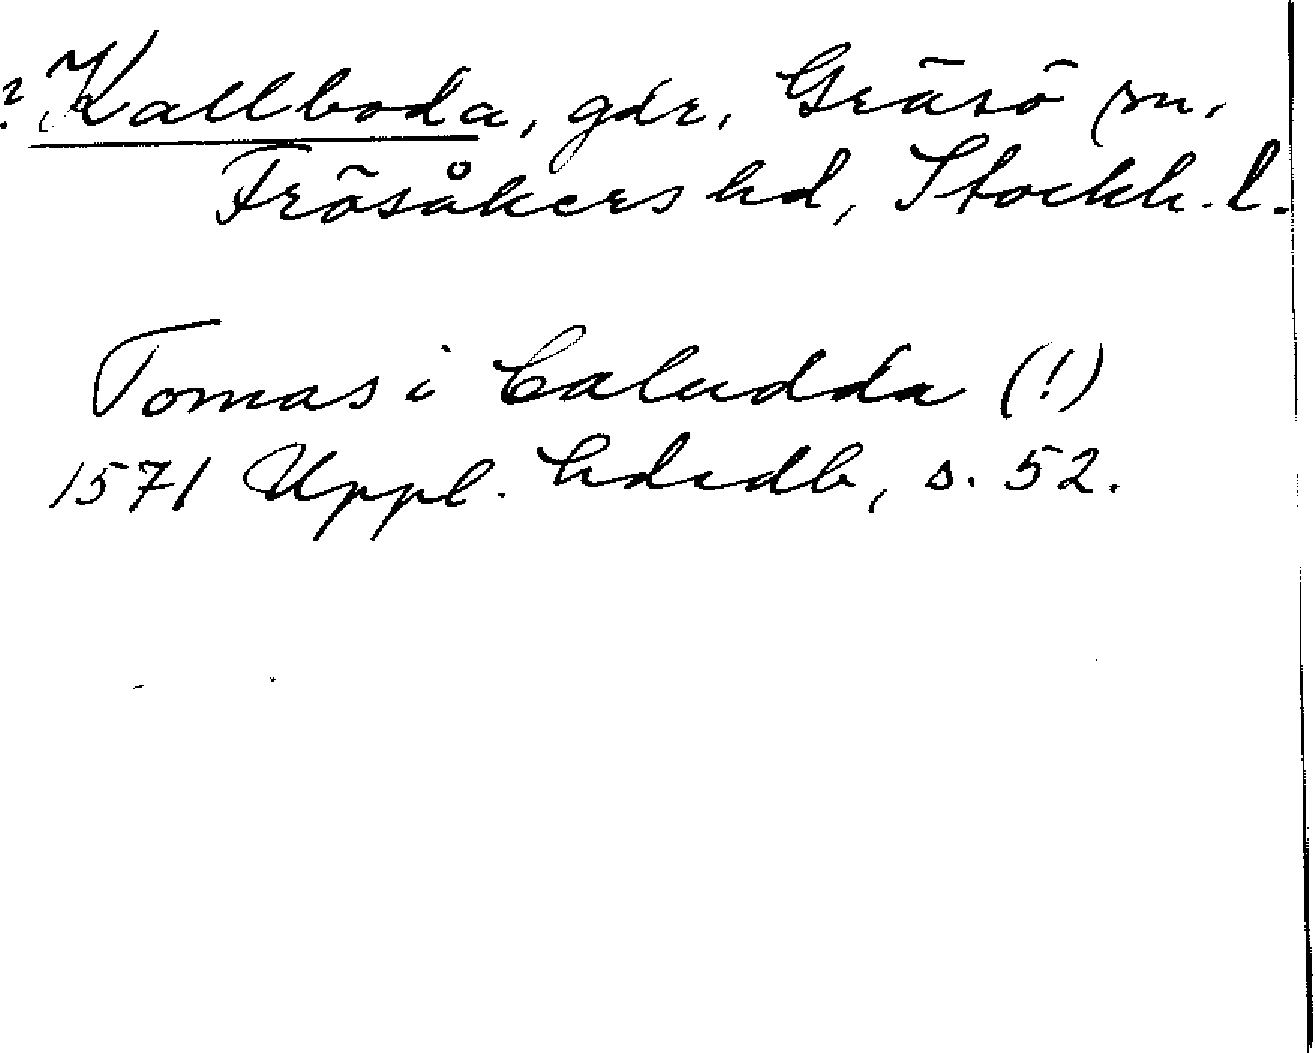 ? Kallboda, gdr, Gräsö sn,
Frösåkers hd, Stockh. l.
Tomas i Caludda (!)
1571 Uppl. hdrdb, s. 52.